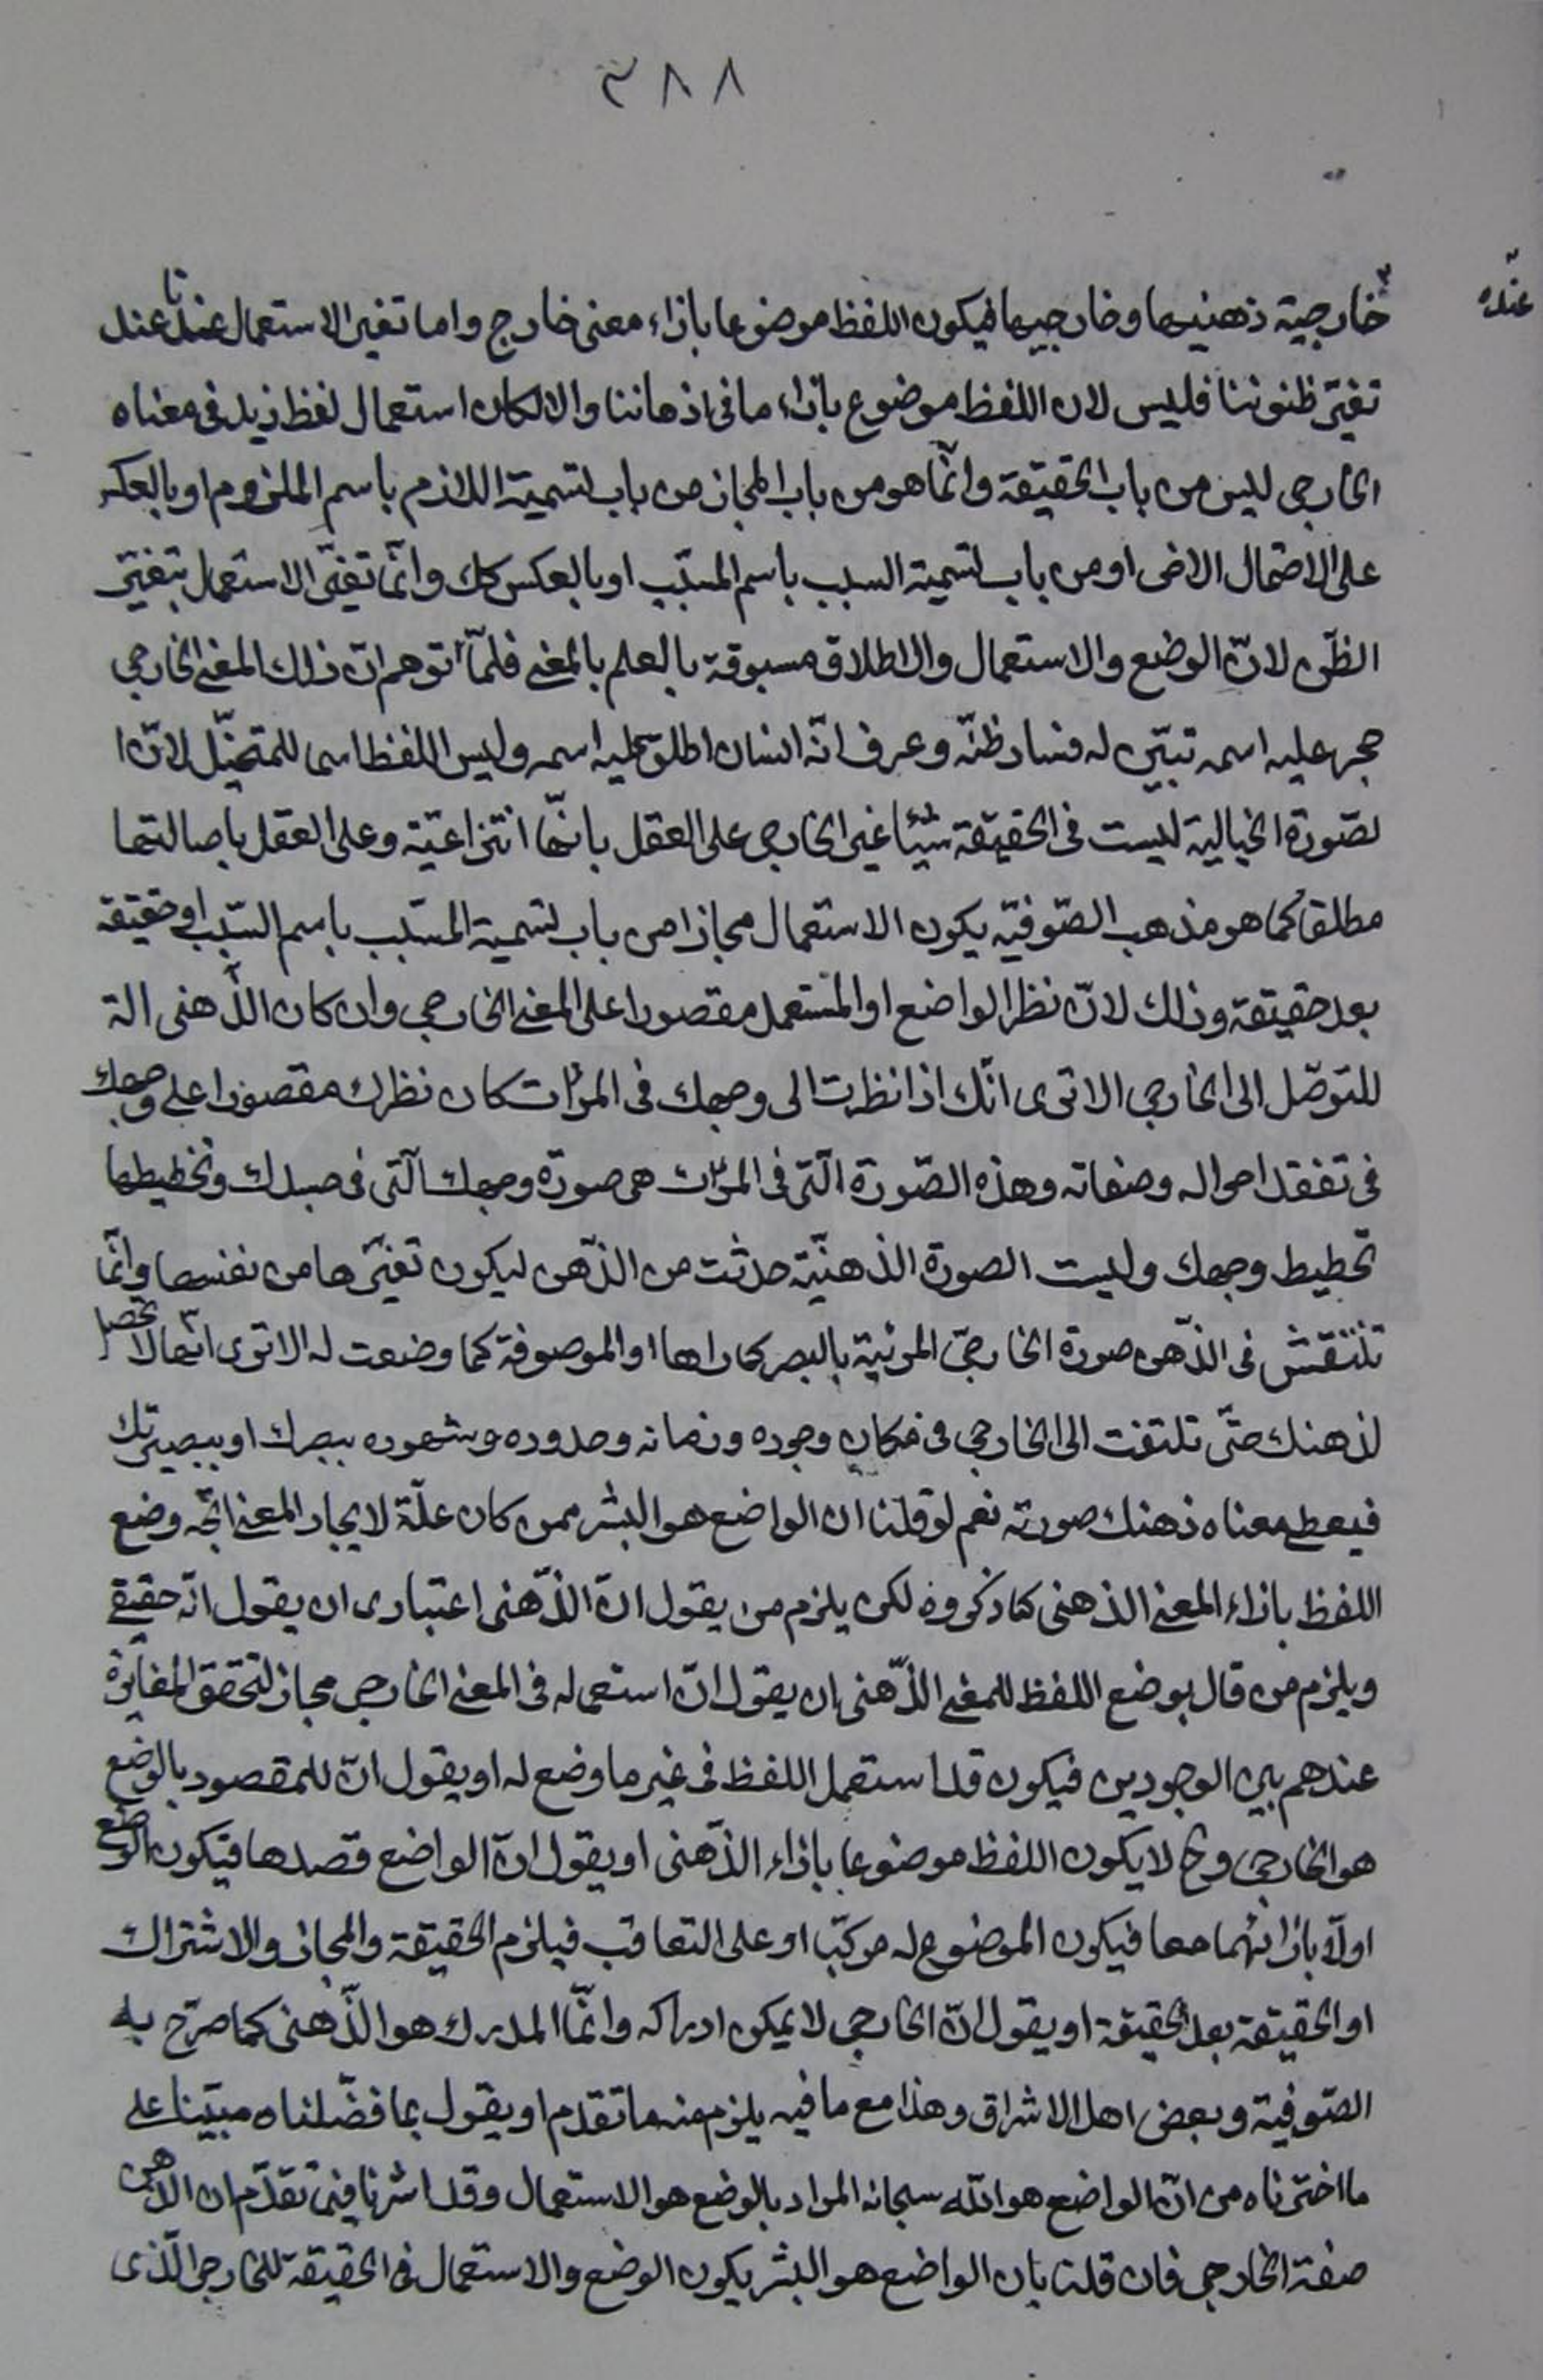 ٣٨٨
عنده
خارجية ذهنيها وخارجيها فيكون اللفظ موضوعا بازاء معنى خارج واما تغير الاستعمال عندنا عند
تغيّر ظنوننا فليس لان اللفظ موضوع بازاء ما فى اذهاننا والا لكان استعمال لفظ زيد فى معناه
الخارجى ليس من باب الحقيقة وانّما هو من باب المجاز من باب لتسمية اللازم باسم الملزوم او بالعكس
على الاحتمال الاخر او من باب تسمية السبب باسم المسبّب او بالعكس كك وانّما تغيّر الاستعمال بتغيّر
الظّن لانّ الوضع والاستعمال والاطلاق مسبوقة بالعلم بالمعنى فلمّا توهم انّ ذلك المعنى الخارجى
حجر عليه اسمه تبيّن له فساد ظنّه وعرف انّه انسان اطلق عليه اسمه وليس اللفظ اسما للمتخيّل لانّ ا
لصّورة الخيالية ليست فى الحقيقة شيئا غير الخارجى على العقل بانّها انتزاعيّة وعلى العقل باصالتها
مطلقا كما هو مذهب الصّوفيّه يكون الاستعمال مجازا من باب تسمية المسبّب باسم السّبب او حقيقة
بعد حقيقة وذلك لانّ نظر الواضع او المستعمل مقصورا على المعنى الخارجى وان كان الذّهنى الة
للتوصّل الى الخارجى الا ترى انّك اذا نظرت الى وجهك فى المرات كان نظرك مقصورا على وجهك
فى تفقد احواله وصفاته وهذه الصّورة الّتى فى المرات هى صورة وجهك الّتى فى جسدك وتخطيطها
تخطيط وجهك وليست الصورة الذهنيّة حدثت من الذّهن ليكون تغيّرها من نفسها وانّما
تنتقش فى الذّهن صورة الخارجىّ المرئيّة بالبصر كما راها او الموصوفة كما وضعت له الا ترى انّها لا تحصل
لذهنك حتّى تلتفت الى الخارجى فى مكان وجوده وزمانه وحدوده وشهوده ببصرك او ببصيرتك
فيعطى معناه ذهنك صورته نعم لو قلنا ان الواضع هو البشر ممن كان علّة لايجاد المعنى اتّجه وضع
اللفظ بازاء المعنى الذهنى كما ذكروه لكن يلزم من يقول انّ الذّهنى اعتبارى ان يقول انّه حقيقى
ويلزم من قال بوضع اللفظ للمعنى الذّهنى ان يقول انّ استعماله فى المعنى الخارجى مجاز لتحقق المغايرة
عندهم بين الوجودين فيكون قد استعمل اللفظ فى غير ما وضع له او يقول انّ للمقصود بالوضع
هو الخارجى وح لا يكون اللفظ موضوعا بازاء الذّهنى او يقول انّ الواضع قصدها فيكون الوضع
اولّا بازائهما معا فيكون الموضوع له مركبّا او على التعاقب فيلزم الحقيقة والمجاز والاشتراك
او الحقيقة بعد الحقيقة او يقول انّ الخارجى لا يمكن ادراكه وانّما المدرك هو الذّهنى كما صرّح به
الصّوفية وبعض اهل الاشراق وهذا مع ما فيه يلزم منه ما تقدم او يقول بما فصّلناه مبيّنا على
ما اخترناه من انّ الواضع هو اللّه سبحانه المراد بالوضع هو الاستعمال وقد اشرنا فيما تقدّم ان الذهنى
صفة الخارجى فان قلت بان الواضع هو البشر يكون الوضع والاستعمال فى الحقيقة للخارجى الّذى